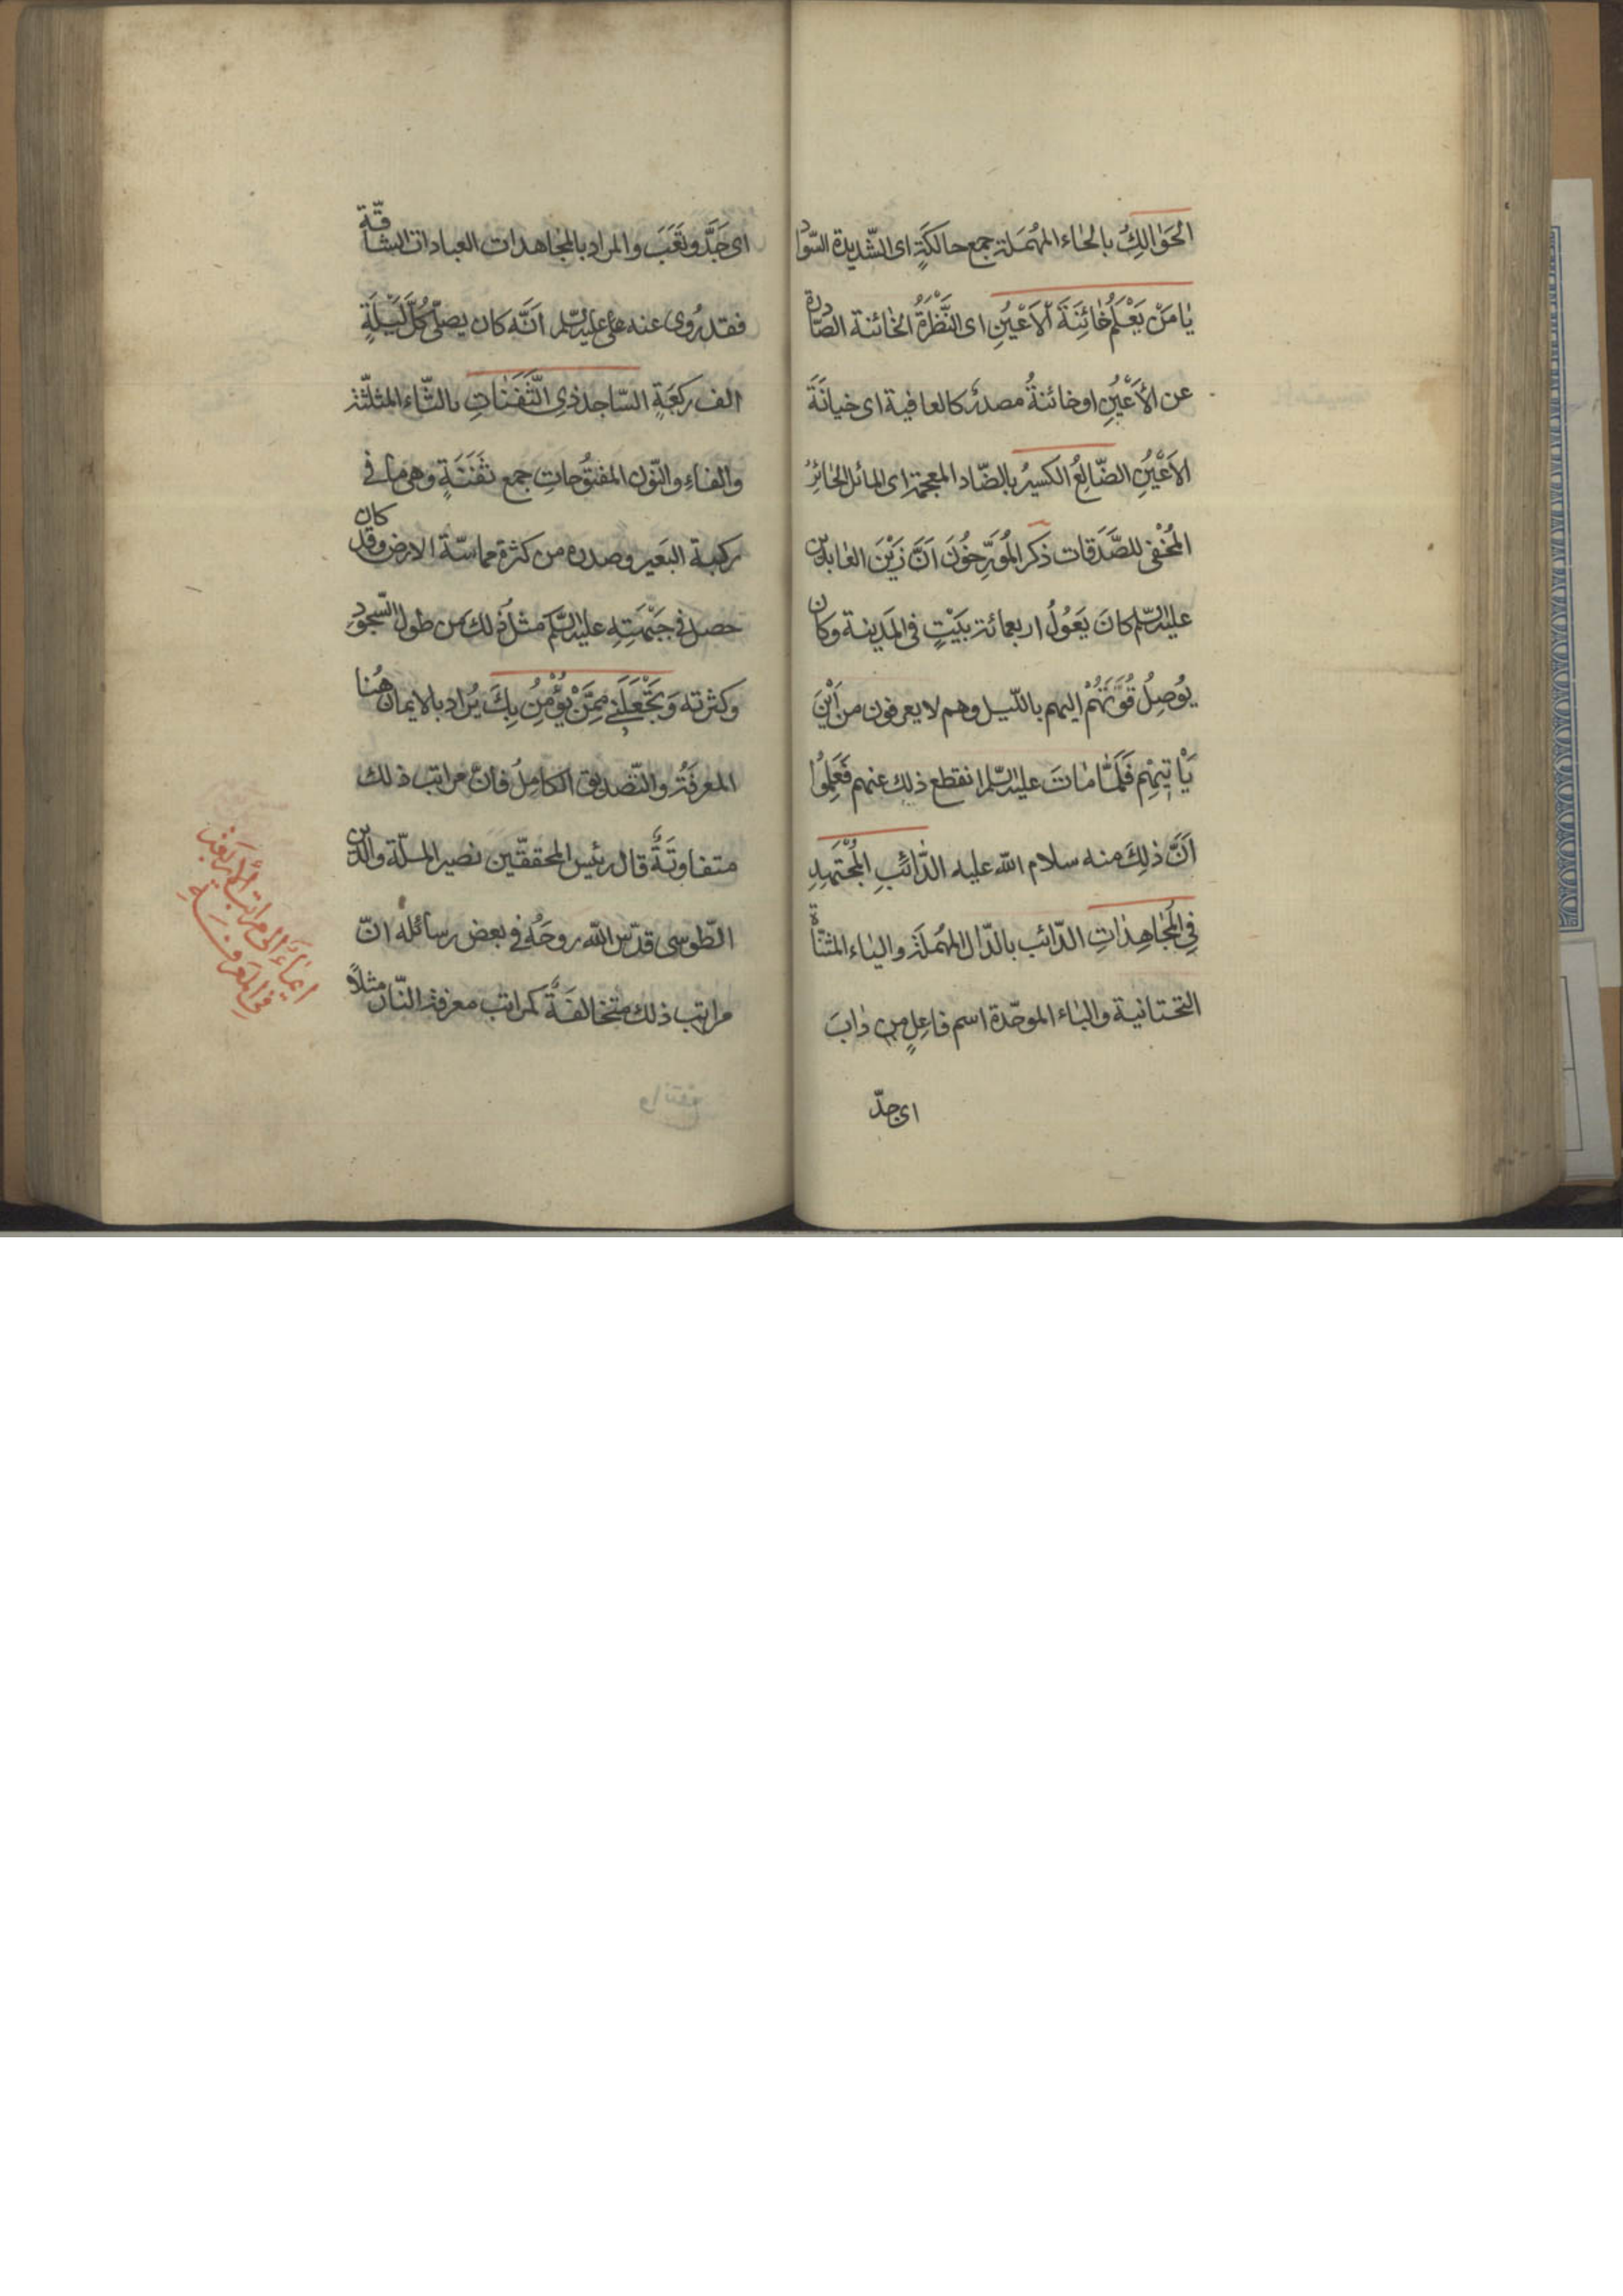 الحَوٰالِكُ بالحٰاء المُهمَلة جمع حالكَةٍ اى الشّديدة السّواد
يٰا مَنْ يَعْلَمُ خٰائِنَةَ الْاَعْيُنِ اى النَّظْرَةُ الخٰائنة الصّادرة
عن الأَعْيُنِ او خائنةُ مصدرٌ كالعافية اى خيانَةَ
الاَعْيُنِ الضّٰالِعُ الكسيرُ بالضّاد المعجمة اى المائل الجٰائرُ
المُخْفى للصَّدَقات ذكر المُورِّخُونَ اَنَّ زَيْنَ العٰابدين
عليه السّلم كانَ يَعُولُ اربعمائة بَيْتٍ فى المَدينة وكان
يُوصِلُ قُوَتَهُمْ اليهم بالّليل وهم لا يعرفون من اَيْنَ
يَاْتيهِمْ فَلَمّٰا مٰاتَ عليه السّلم انقطع ذلِك عنهم فَعَلِمُوا
اَنَّ ذلِكَ منه سلام الله عليه الدّائبِ المُجْتَهِدِ
فِى المُجٰاهِدٰاتِ الدّائب بالدّال المُهمَلَة والياء المثنّاة
التحتانية والبٰاء الموحّدة اسم فاعِلٍ من دٰابَ
اى جدّ
اى جَدَّ وتَعَبَ والمراد بالمجٰاهدات العبادات الشاقّة
فقد رُوى عنه عليه السّلم اَنّه كان يصلّى كُلَّ لَيْلَةٍ
الف ركعَةٍ السّاجد ذى الثَّفَنٰاتِ بالثّاء المثلّثة
والفاءِ والنّون المفتُوحاتِ جمع ثَفَنَةٍ وهى مٰا فى
ركبة البَعير وصدره من كثرة مماسّة الارض وقد كان
حصل فى جَبْهَتِهِ عليه السّلم مثلُ ذلك من طول السّجودِ
وكثرته وَتَجْعَلَنى مِمَّنْ يُؤْمِنُ بِكَ يُراد بالايمان هُنا
المعرفَةُ والتّصديق الكامِلُ فانّ مراتب ذلك
متفاوتَةٌ قال رئيس المحققّين نصير الملّة والدّين
الطّوسى قدّس الله روحَهُ فى بعض رسائله انّ
مراتب ذلك متخٰالفَةٌ كمراتب معرفة النّار مثلاً
ايمٰاءٌ الى مراتب الاربعة
فى المَعرفَةِ